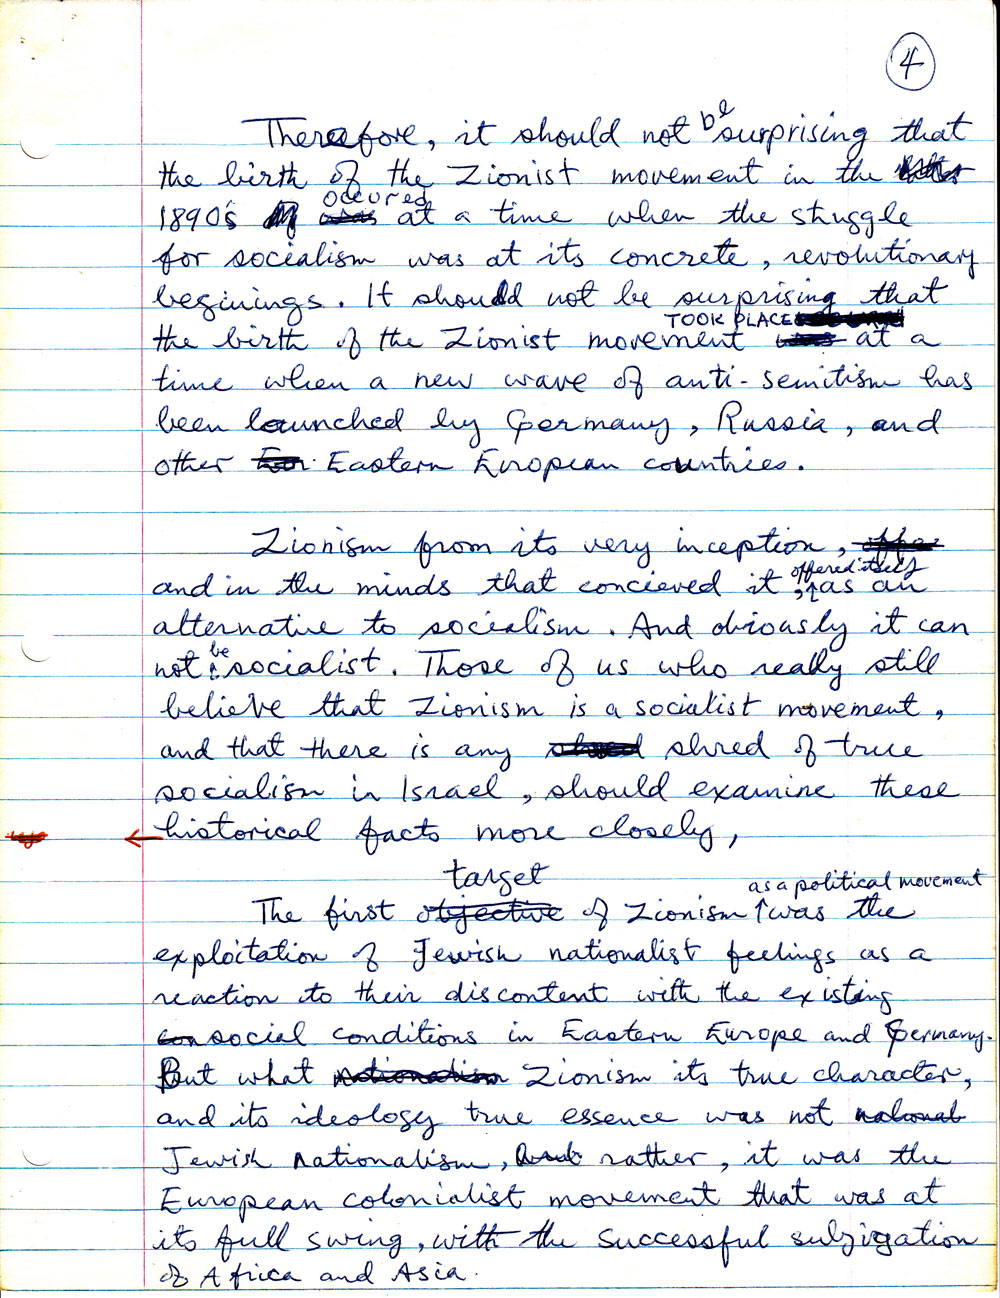 4
Therefore, it should not be surprising that
the birth of the Zionist movement in the
1890's occured at a time when the struggle
for socialism was at its concrete, revolutionary
beginings. It should not be surprising that
the birth of the Zionist movement TOOK PLACE at a
time when a new wave of anti-semitism has
been launched by Germany, Russia, and
other Eastern European countries.
Zionism from its very inception,
and in the minds that concieved it, offered itself as an
alternative to socialism. And obviously it can
not be socialist. Those of us who really still
believe that Zionism is a socialist movement,
and that there is any shred of true
socialism in Israel, should examine these
historical facts more closely,
The first target of Zionism as a political movement was the
exploitation of Jewish nationalist feelings as a
reaction to their discontent with the existing
social conditions in Eastern Europe and Germany.
But what Zionism its true character,
and its ideology true essence was not
Jewish nationalism, rather, it was the
European colonialist movement that was at
its full swing, with the successful subjigation
of Africa and Asia.